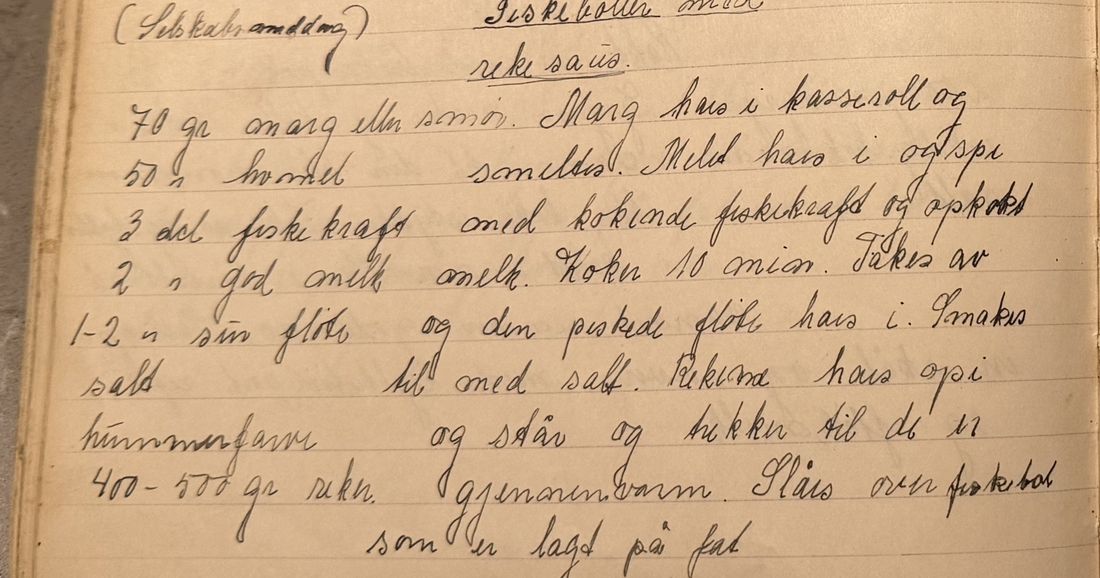 (Selskabsmiddag) Fiskeboller med
reke saus.
70 gr marg eller smør. Marg haes i kasseroll og
50 " hvmel smeltes. Melet haes i og spe
3 del fiskekraft med kokende fiskekraft og opkokt
2 " god melk melk. Koker 10 min. Takes av
1-2 " sur fløte og den piskede fløte haes i. Smakes
salt til med salt. Rekene haes opi
hummerfarve og står og trekker til de er
400-500 gr reker. gjennemvarm. Slåes over fiskebol
som er lagt på fat